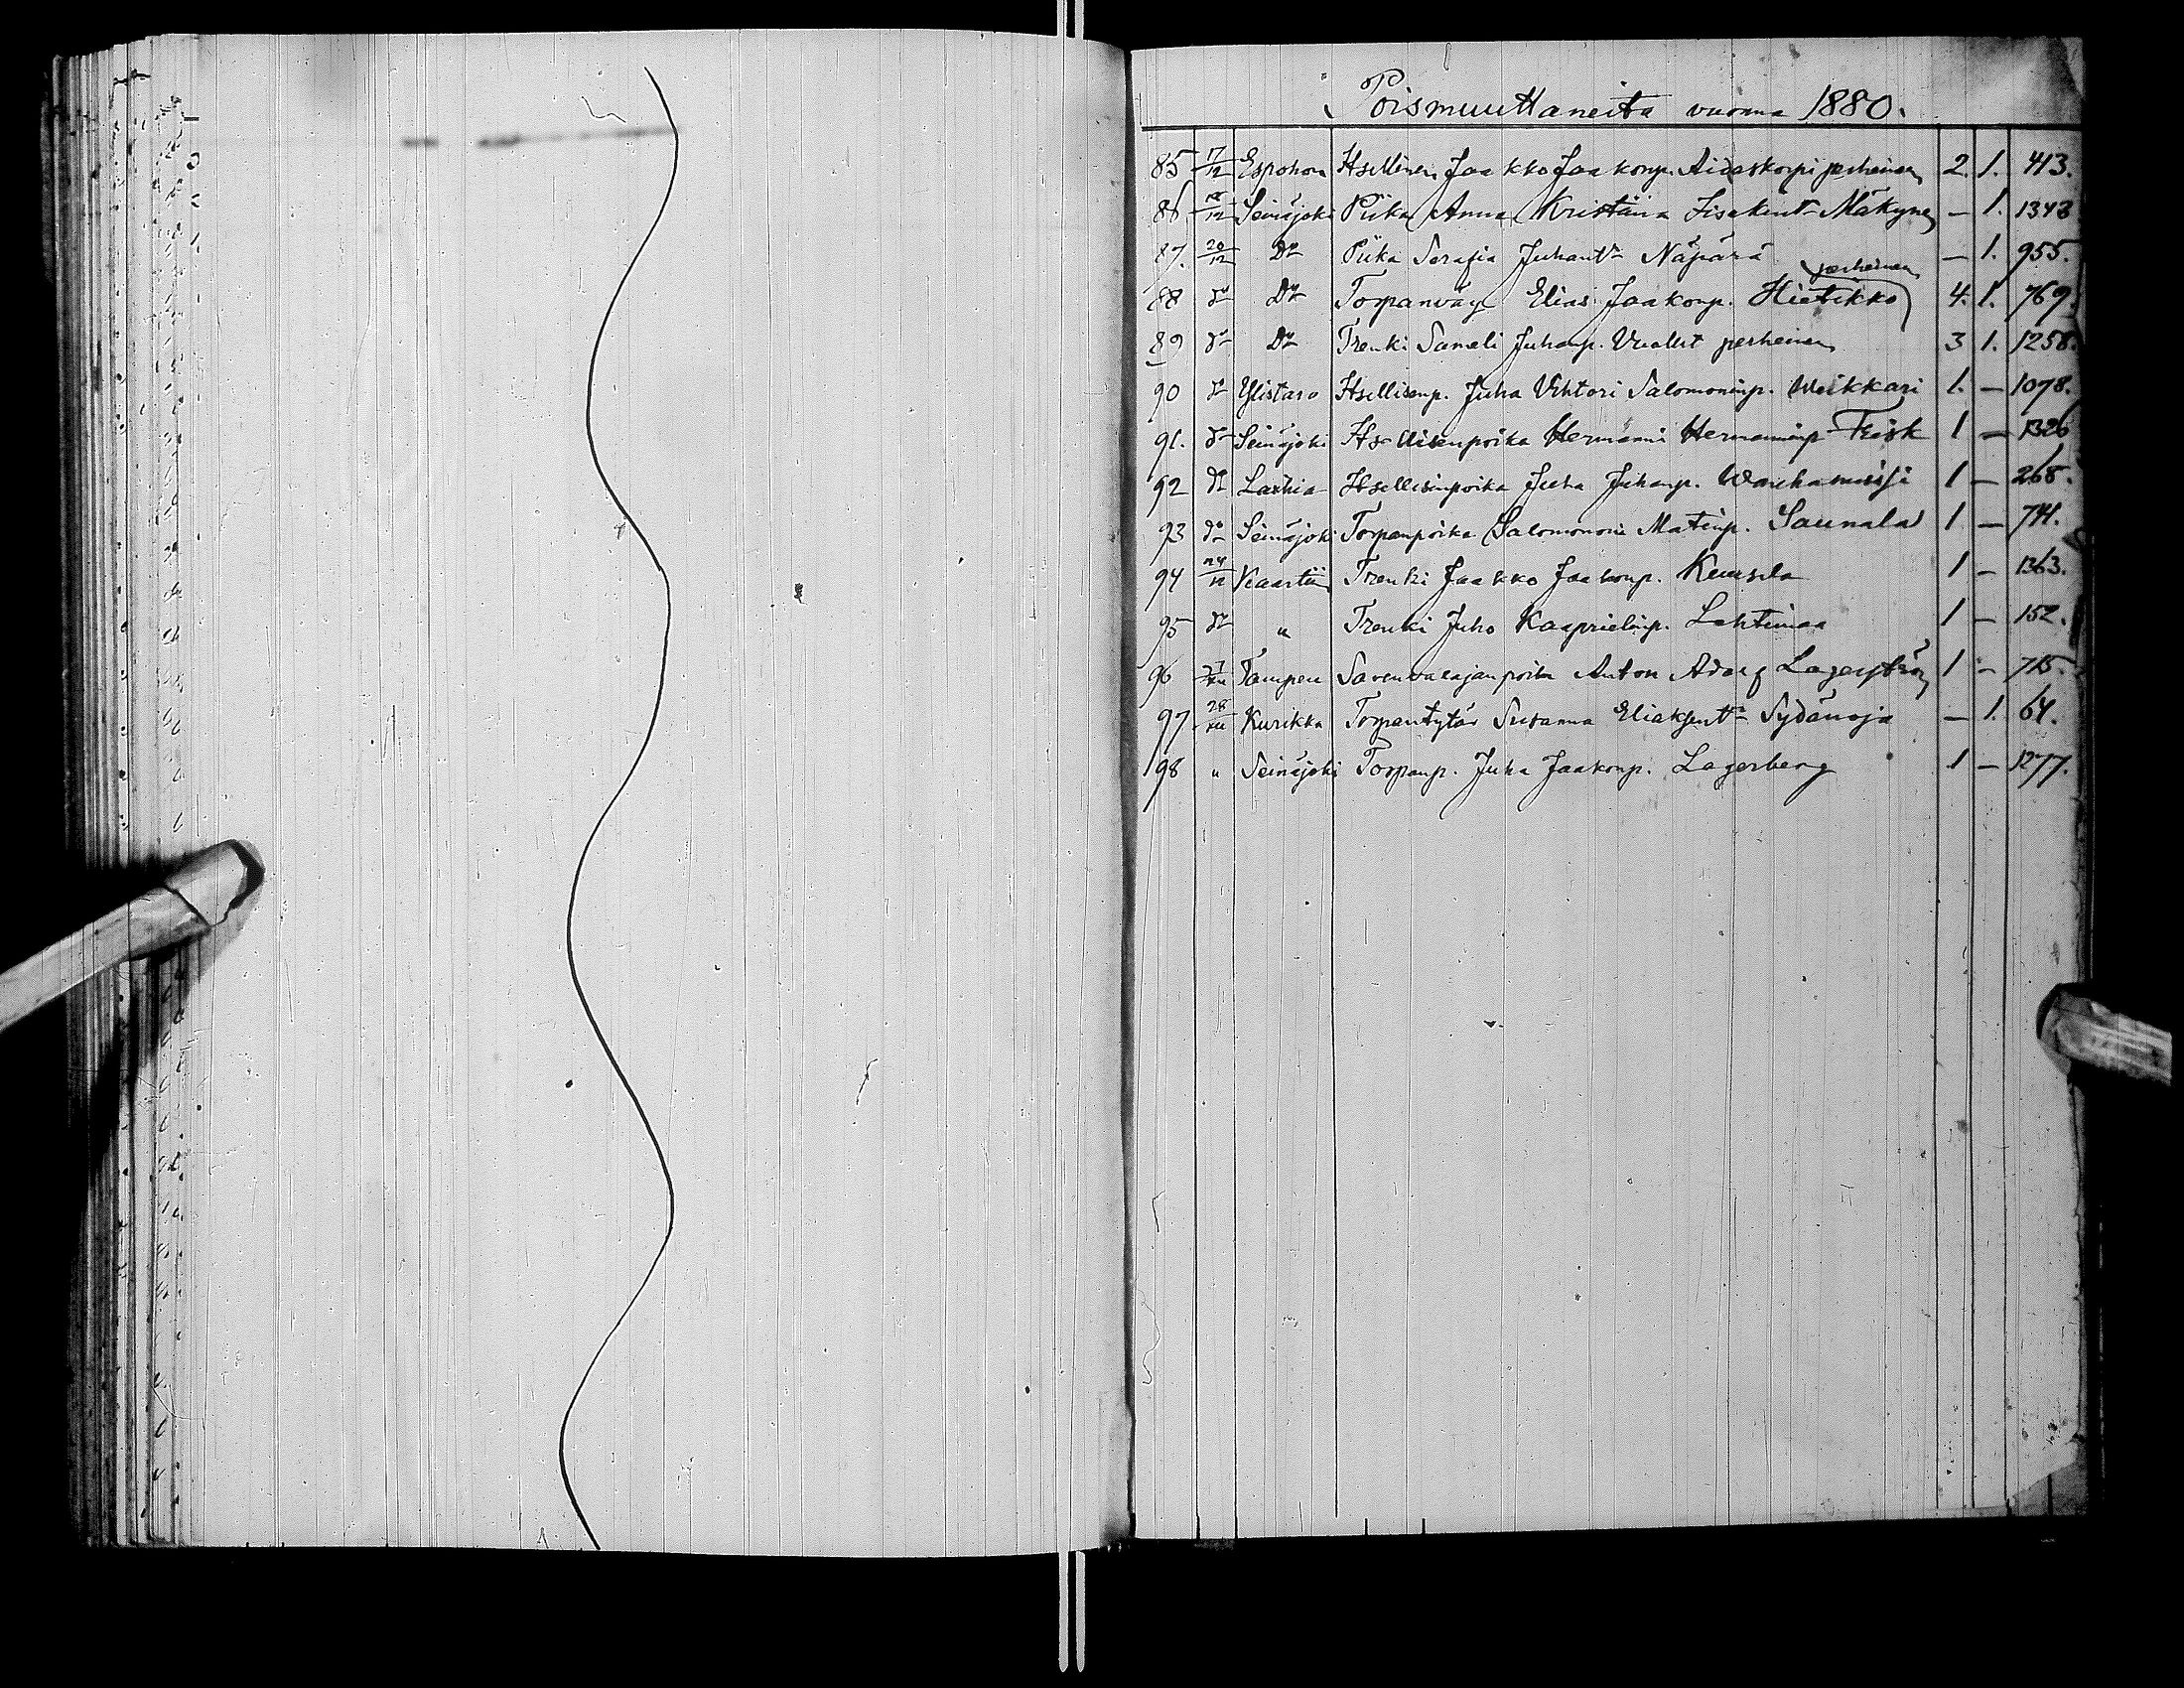 Poismuuttaneita vuonna 1880.
85 17/12 Espohon Itsellinen Jaakko Jaakonp. Aidaskorpi perheinen 2. 1. 413.
86 18/12 Seinäjoki Piika Anna Kristiina Iisakint. Mäkynen — 1. 1343
87. 20/12 Do Piika Serafia Juhant. Näpärä — 1. 955.
perheinen
88 do Do Torpanväy Elias Jaakonp. Hietikko 4. 1. 769.
89 do Do Trenki Sameli Juhanp. perheinen 3 1. 1258.
90 do Ylistaro Itsellisenp. Juha Vihtori Salomoninp. Weikkari 1. — 1078.
91. do Seinäjoki Itsellisenpoika Hermanni Hermanninp Frisk 1 — 1326
92 do Laihia Itsellisenpoika Juha Juhanp. 1 — 268.
93 do Seinäjoki Torpanpoika Salomononi Matinp. Saunala 1 — 741.
94 24/12 Kaartiin Trenki Jaakko Jaakonp. Keusela 1 — 1363.
95 do " Trenki Juho Kaaprielinp. Lehtimaa 1 — 152.
96 27/XII Tamperi Savenvalajanpoika Anton Adolf Lagerström 1 — 715.
97 28/XII Kurikka Torpantytär Susanna Eliaksent. Sydänoja — 1. 64.
98 " Seinäjoki Torpanp. Juha Jaakonp. Lagerberg 1 — 1277.